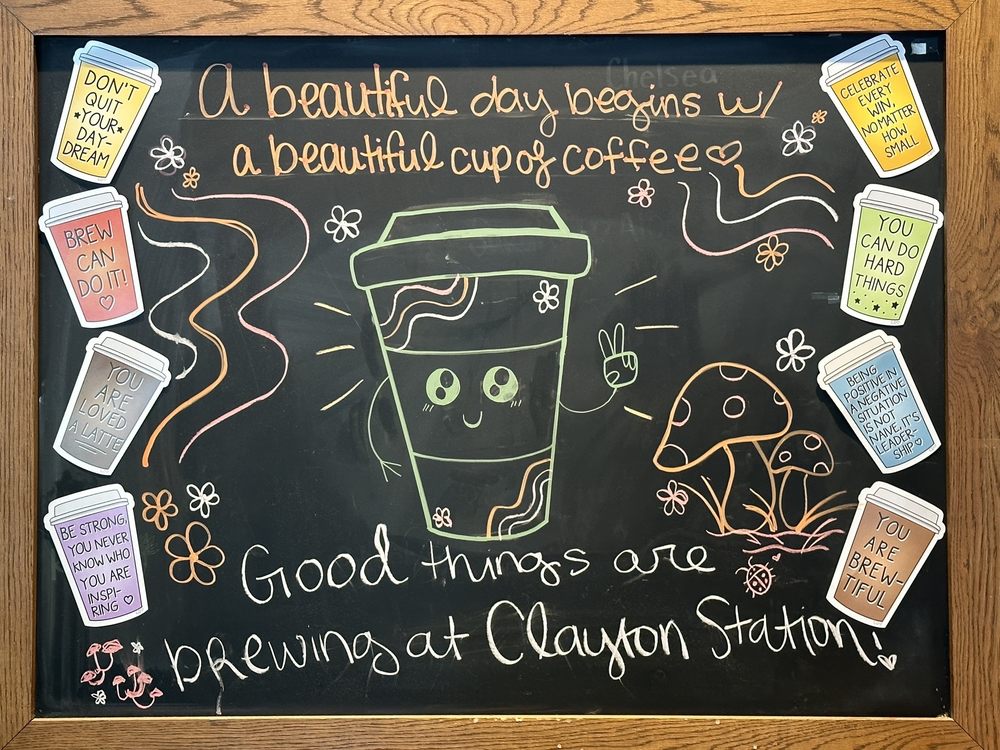 Chelsea
A beautiful day begins w/
a beautiful cup of coffee
DON'T
QUIT
YOUR
DAY-
DREAM
BREW
CAN
DO IT!
YOU
ARE
LOVED
A LATTE
BE STRONG,
YOU NEVER
KNOW WHO
YOU ARE
INSPI-
RING
CELEBRATE
EVERY
WIN,
NO MATTER
HOW
SMALL
YOU
CAN DO
HARD
THINGS
BEING
POSITIVE IN
A NEGATIVE
SITUATION
IS NOT
NAIVE, IT'S
LEADER-
SHIP
YOU
ARE
BREW-
TIFUL
Good things are
brewing at Clayton Station!